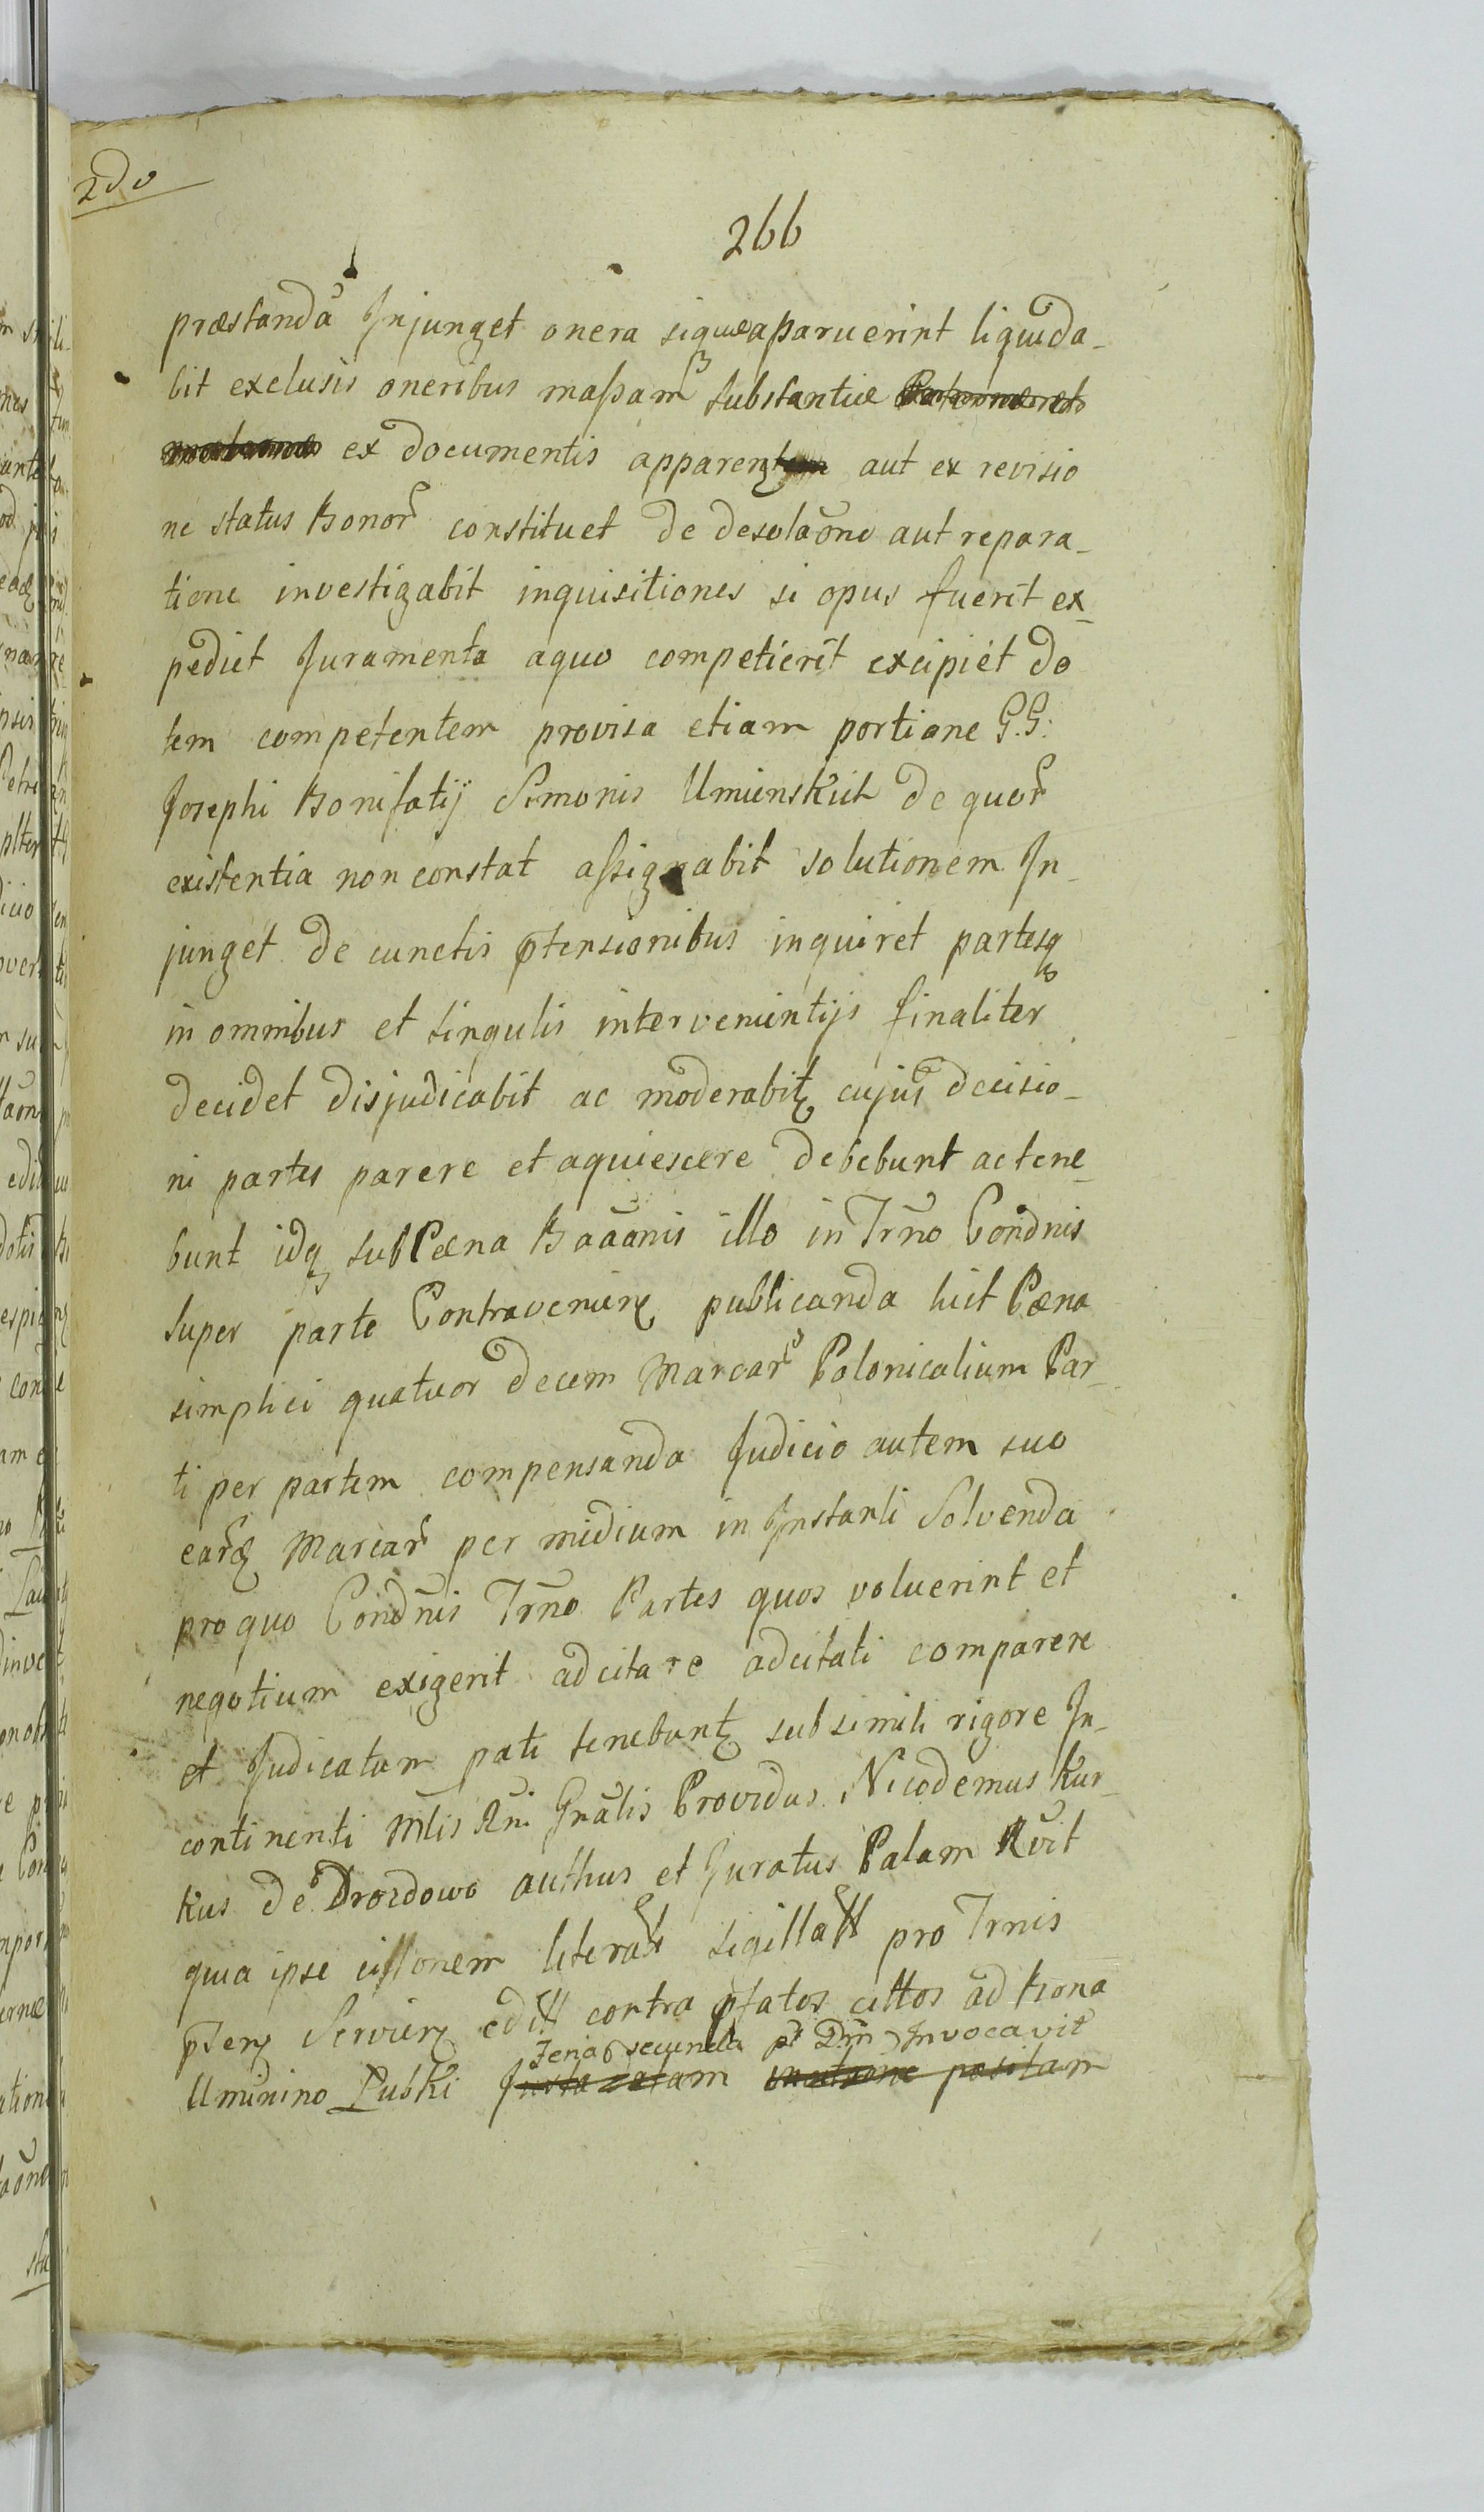 2do
266
præstanda Injunget onera siquæ aparuerint liquida_
bit exclusis oneribus maßam substantiæ
ex documentis apparen aut ex revisio
ne status bonor constituet de desolaõne aut repara_
tione investigabit inquisitiones si opus fuerit ex_
pediet Juramenta aquo competierit excipiet do
tem competentem provisa etiam portione G.G:
Josephi Bonifatij Simonis Umienskich de quor
existentia non constat aßignabit solutionem In_
junget de cunctis ptensionibus inquiret partesq
in omnibus et singulis intervenientijs finaliter
decidet disjudicabit ac moderabit cujus decisio_
ni partes parere et aquiescere debebunt ac tene_
bunt idq sub Pæna Baãnis illo in Trño Condnis
super parte Contravenien publicanda luit Pæna
simplici quatuor decem Marcar Polonicalium Par_
ti per partem compensanda Judicio autem suo
earq Marcar per midium in Instanti Solvenda
pro quo Condñis Trño Partes quos voluerint et
negotium exigerit adcitare adcitati comparere
et Judicatum pati tenebunt sub simili rigore In_
continenti Mlis Rni Gñalis Providus Nicodemus Kur_
kus de Drozdowo authus et Juratus Palam Rvit
quia ipse cißionem literar sigillatt pro Trnis
pten Servien editt contra pfatos cittos ad Bona
Feria secunda pt Dm Invocavit
Uminino Lubki Juxta zatam positam